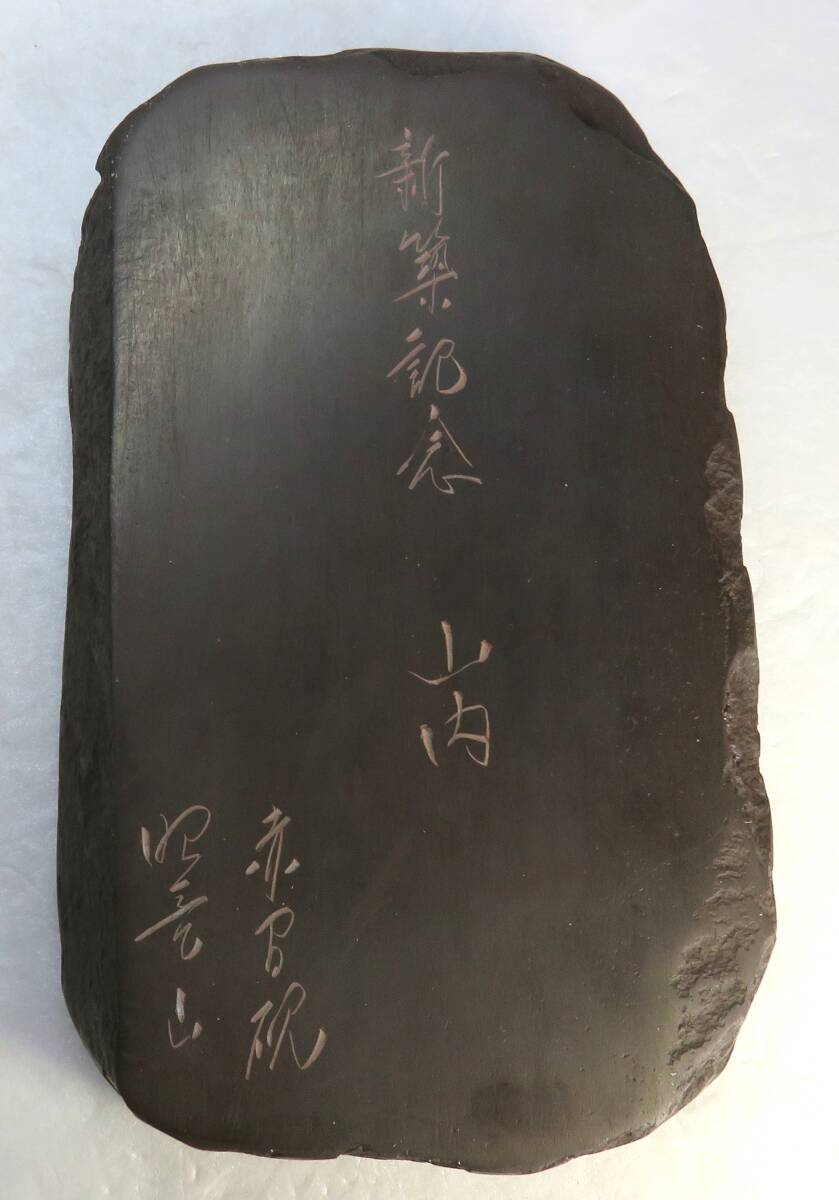 新築記念 山内
赤間硯
山